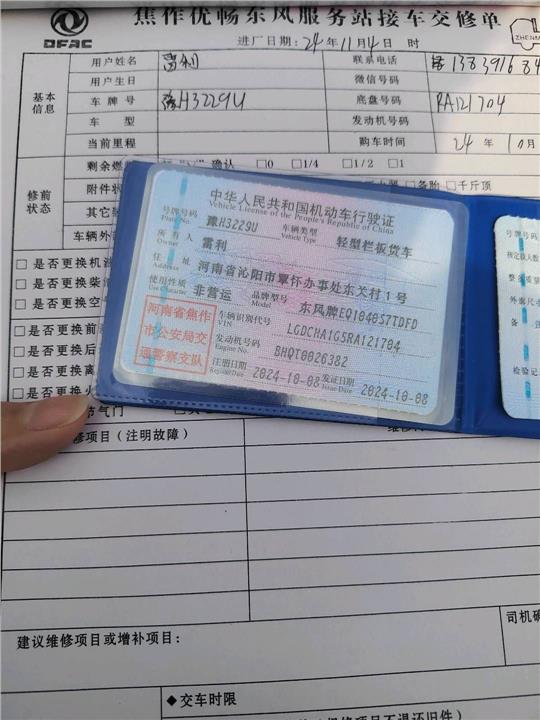 焦作优畅东风服务站接车交修单
DFAC
进厂日期：24年11月4日 时
ZHENM
基本信息
用户姓名 雷利 联系电话
用户生日 微信号码
车牌号 豫H3229U 底盘号码 RA121704
车型 发动机号码
当前里程 购车时间 24年10月
修前状态
剩余燃 确认 □0 □1/4 □1/2 □1
附件状 □备胎 □千斤顶
其它
车辆外
□是否更换机
□是否更换柴
□是否更换空
□是否更换前
□是否更换后
□是否更换离
□是否更换火
节气门
中华人民共和国机动车行驶证
Vehicle License of the People's Republic of China
号牌号码 Plate No. 豫H3229U 车辆类型 Vehicle Type 轻型栏板货车
所有人 Owner 雷利
住址 Address 河南省沁阳市覃怀办事处东关村1号
使用性质 Use Character 非营运 品牌型号 Model 东风牌EQ1040S7TDFD
河南省焦作市公安局交通警察支队
车辆识别代号 VIN LGDCHA1G5RA121704
发动机号码 Engine No. BHQT0026382
注册日期 Register Date 2024-10-08 发证日期 Issue Date 2024-10-08
号牌号
核定载人数
整备质量
外廓尺寸
备注
检验记
修项目（注明故障）
建议维修项目或增补项目：
司机确
◆交车时限